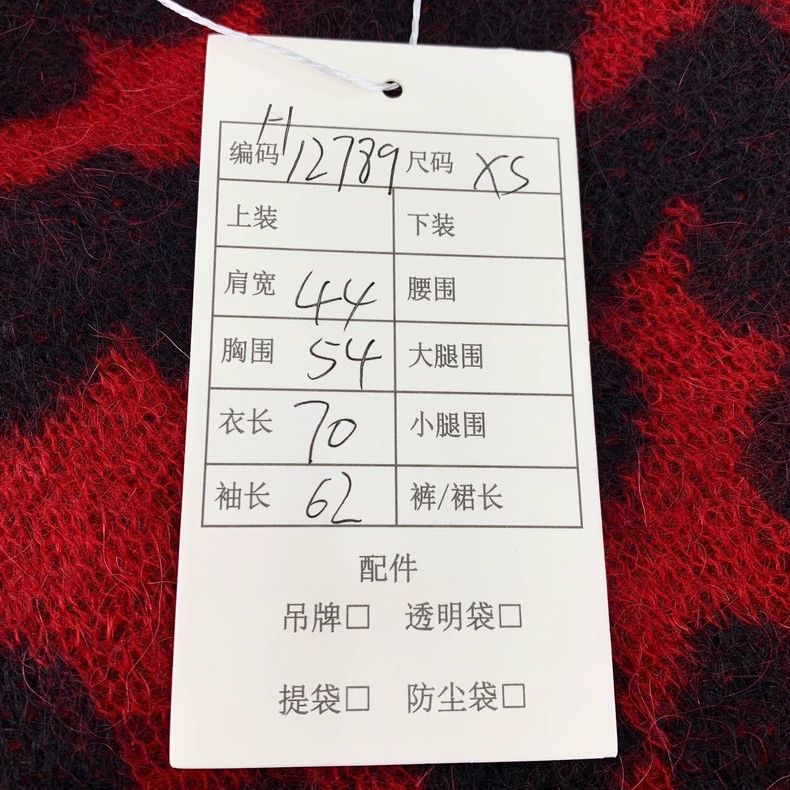 编码 H12789 尺码 XS
上装 下装
肩宽 44 腰围
胸围 54 大腿围
衣长 70 小腿围
袖长 62 裤/裙长
配件
吊牌□ 透明袋□
提袋□ 防尘袋□